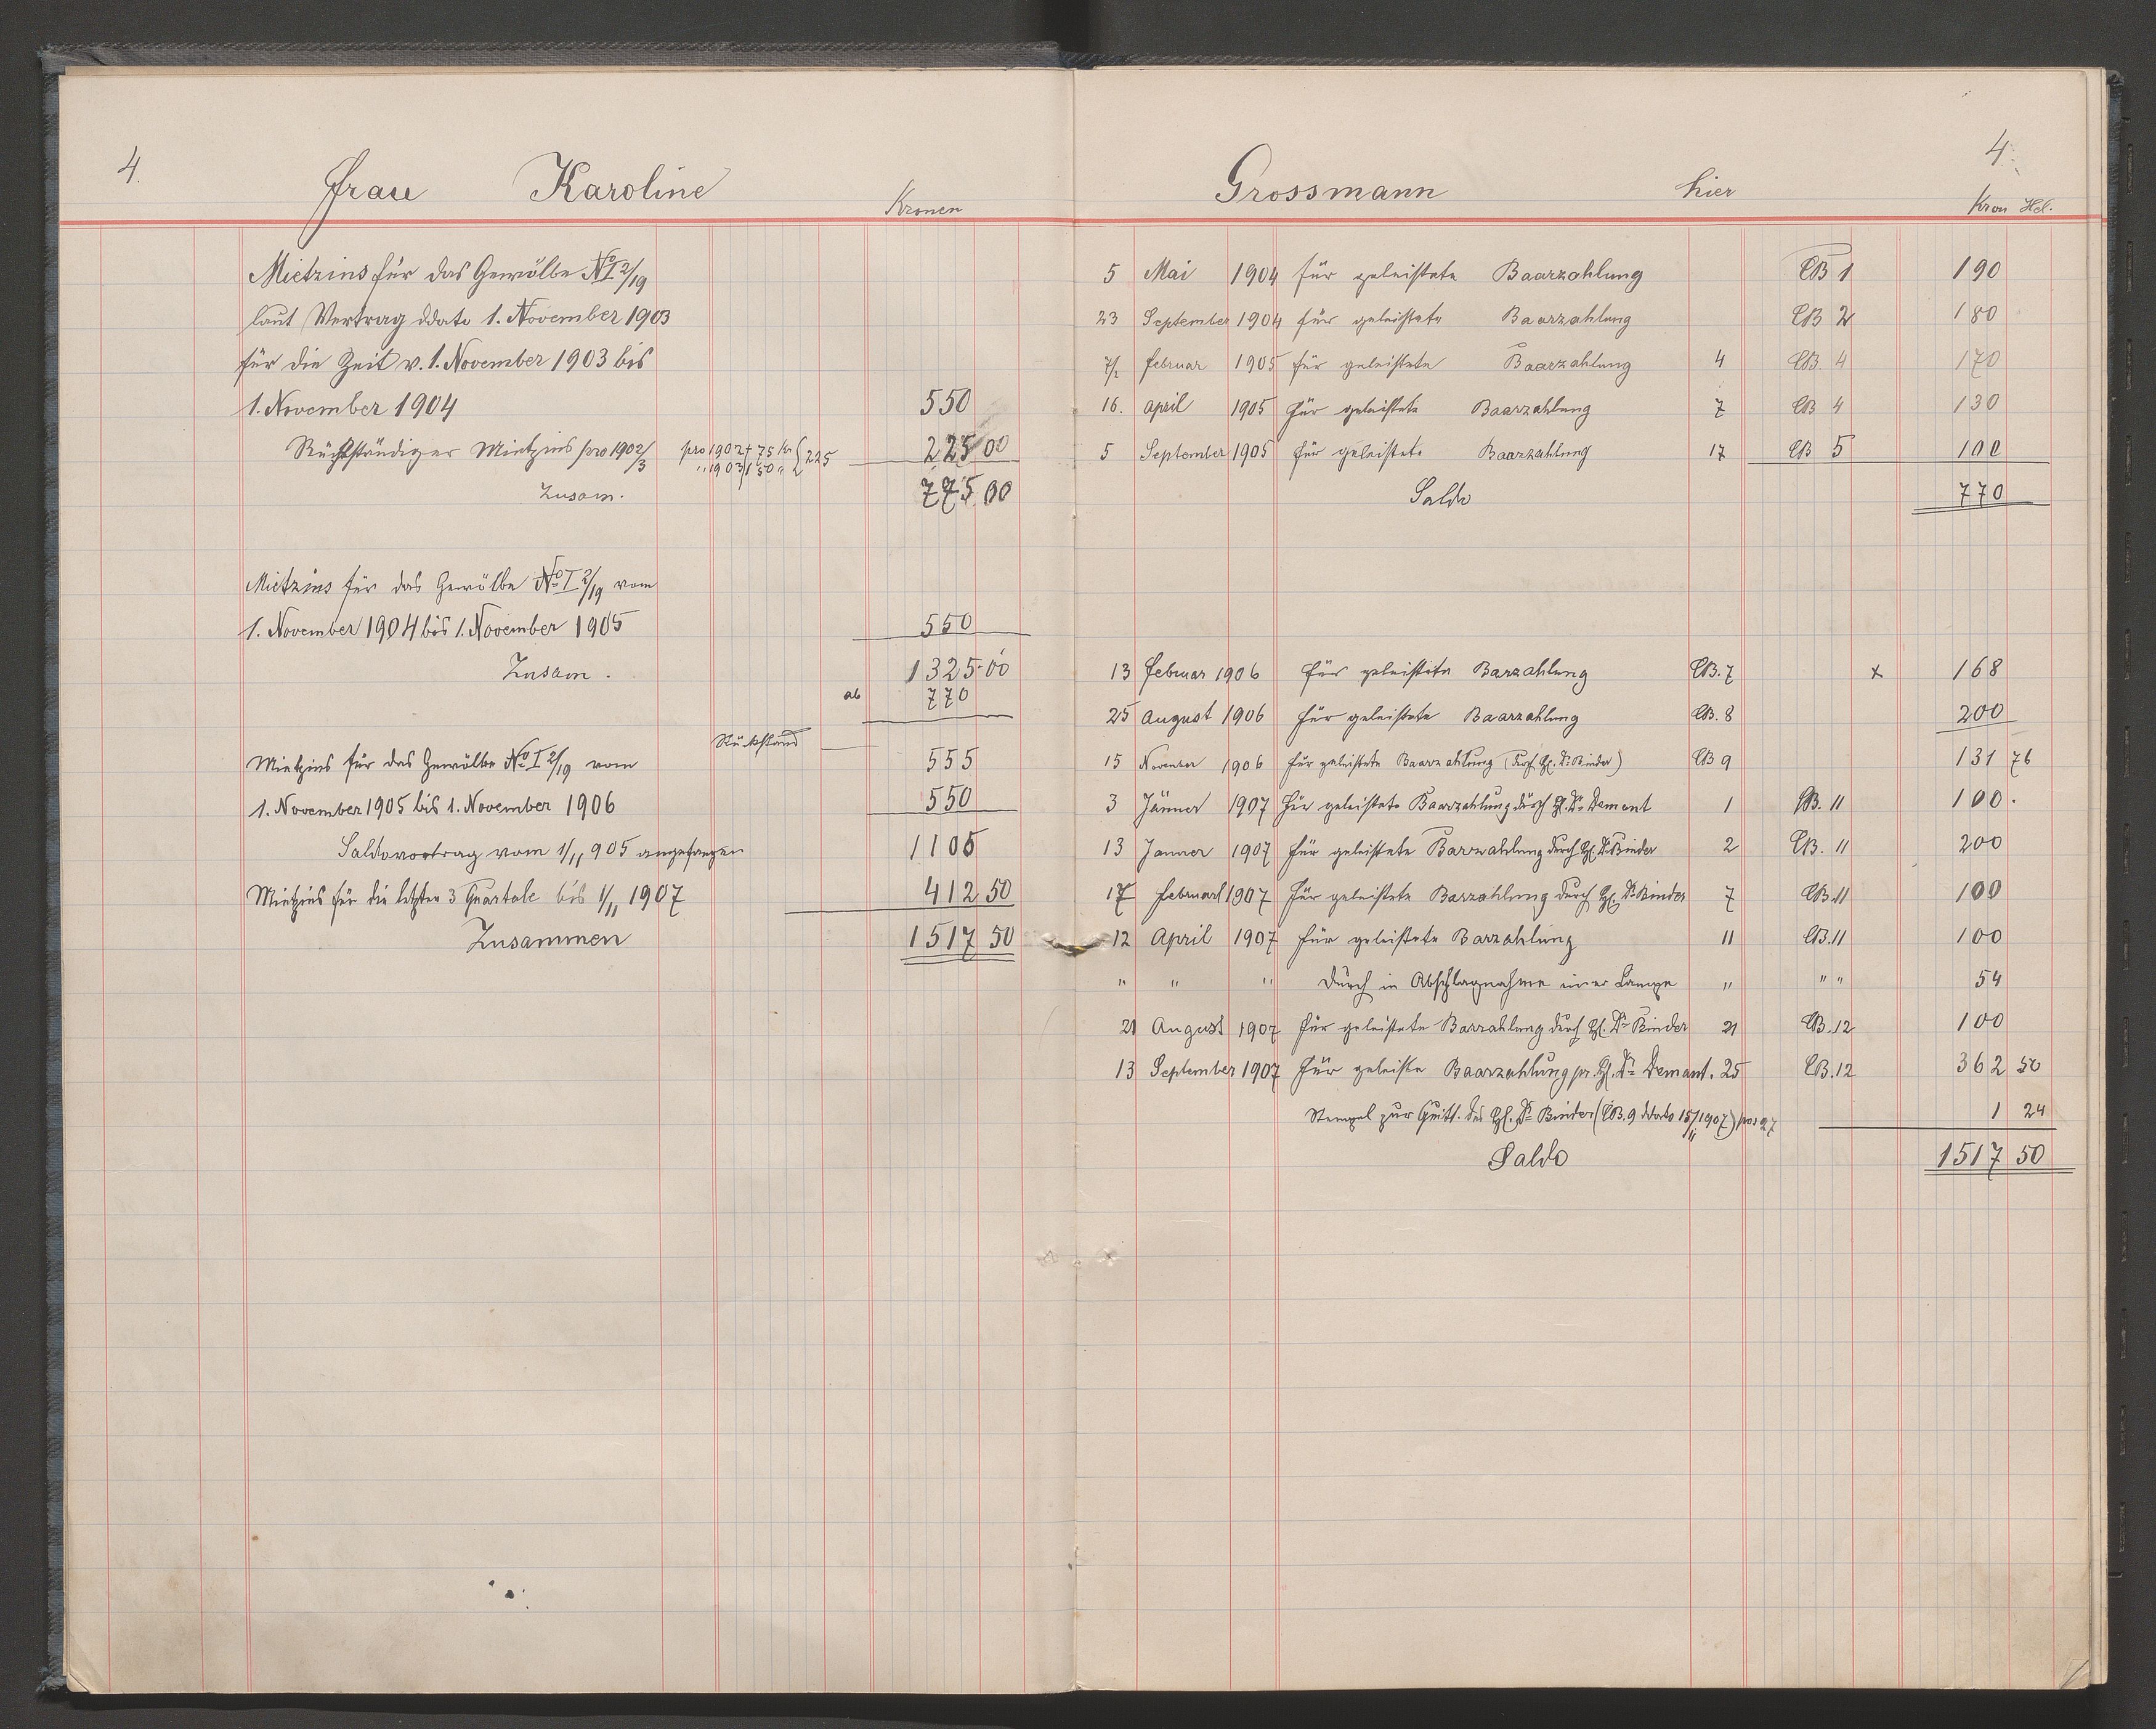 4.
Frau Karoline
Kronen
Mietzins für das Gewölbe № I 2/19
laut Vertrag ddato 1. November 1903
für die Zeit v. 1. November 1903 bis
1. November 1904 550
Rückständiger Mietzins pro 1902/3 pro 1902 75 Kr 225 225 00
" 1903 150 "
Zusam. 775 00
Mietzins für das Gewölbe № I 2/19 vom
1. November 1904 bis 1. November 1905 550
Zusam. 1325 00
ab 770
Rückstand
Mietzins für das Gewölbe № I 2/19 vom 555
1. November 1905 bis 1. November 1906 550
Saldovortrag vom 1/11 905 angefangen 1105
Mietzins für die letzten 3 Quartale bis 1/11 1907 412 50
Zusammen 1517 50
4.
Grossmann hier
Kron Hel.
5 Mai 1904 für geleistete Baarzahlung CB 1 190
23 September 1904 für geleistete Baarzahlung CB 2 180
7/2 Februar 1905 für geleistete Baarzahlung 4 CB. 4 170
16. April 1905 für geleistete Baarzahlung 7 CB 4 130
5 September 1905 für geleistete Baarzahlung 17 CB 5 100
Saldo 770
13 Februar 1906 für geleistete Barzahlung CB. 7 x 168
25 August 1906 für geleistete Baarzahlung CB. 8 200
15 November 1906 für geleistete Baarzahlung (durch H. Dr Binder) CB 9 131 76
3 Jänner 1907 für geleistete Baarzahlung durch H. Dr Demant 1 CB. 11 100.
13 Janner 1907 für geleistete Barzahlung durch H. Dr Binder 2 CB. 11 200
17 Februar 1907 für geleistete Barzahlung durch H. Dr Binder 7 CB. 11 100
12 April 1907 für geleistete Barzahlung 11 CB. 11 100
" " " durch in Abschlagnahme einer Lampe " " " 54
21 August 1907 für geleistete Barzahlung durch H. Dr Binder 21 CB. 12 100
13 September 1907 für geleiste Baarzahlung pr. H. Dr Demant. 25 CB. 12 362 50
Stempel zur Quitt. des H. Dr Binder (CB. 9 ddato 15/11 1907) pos 27 1 24
Saldo 1517 50